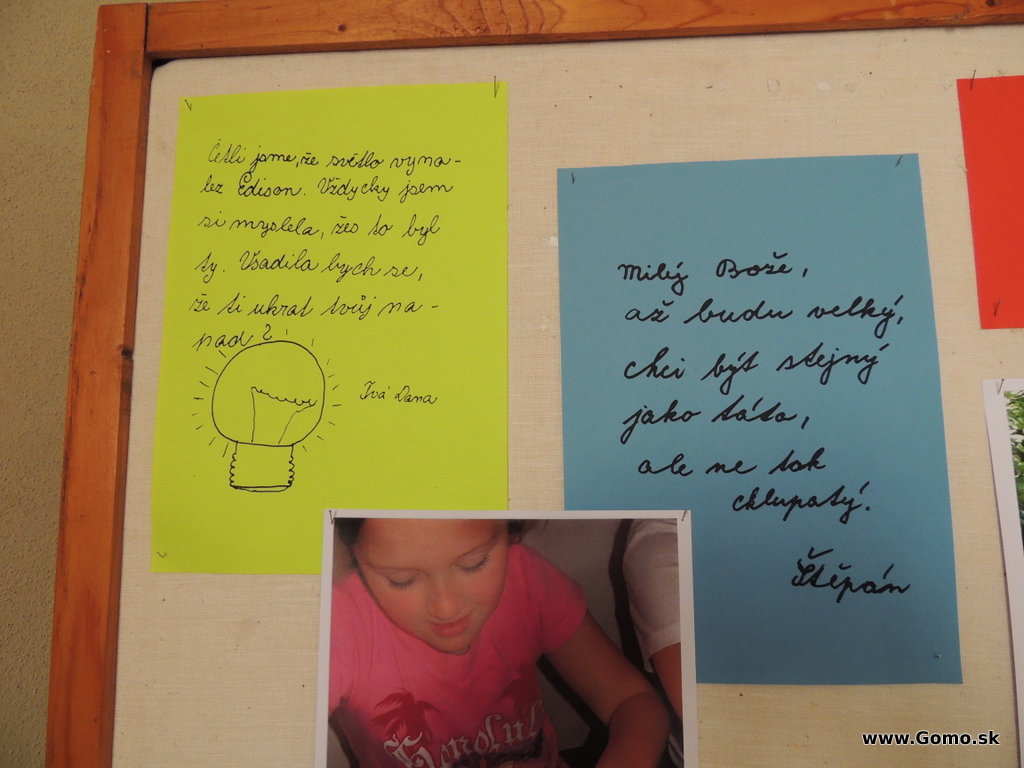 Četli jsme, že světlo vyna-
lez Edison. Vždycky jsem
si myslela, žes to byl
ty. Vsadila bych se,
že ti ukrat tvůj na-
pad?
Tvá Dana
Milý Bože,
až budu velký,
chci být stejný
jako táta,
ale ne tak
chlupatý.
Štěpán
Honolul
www.Gomo.sk